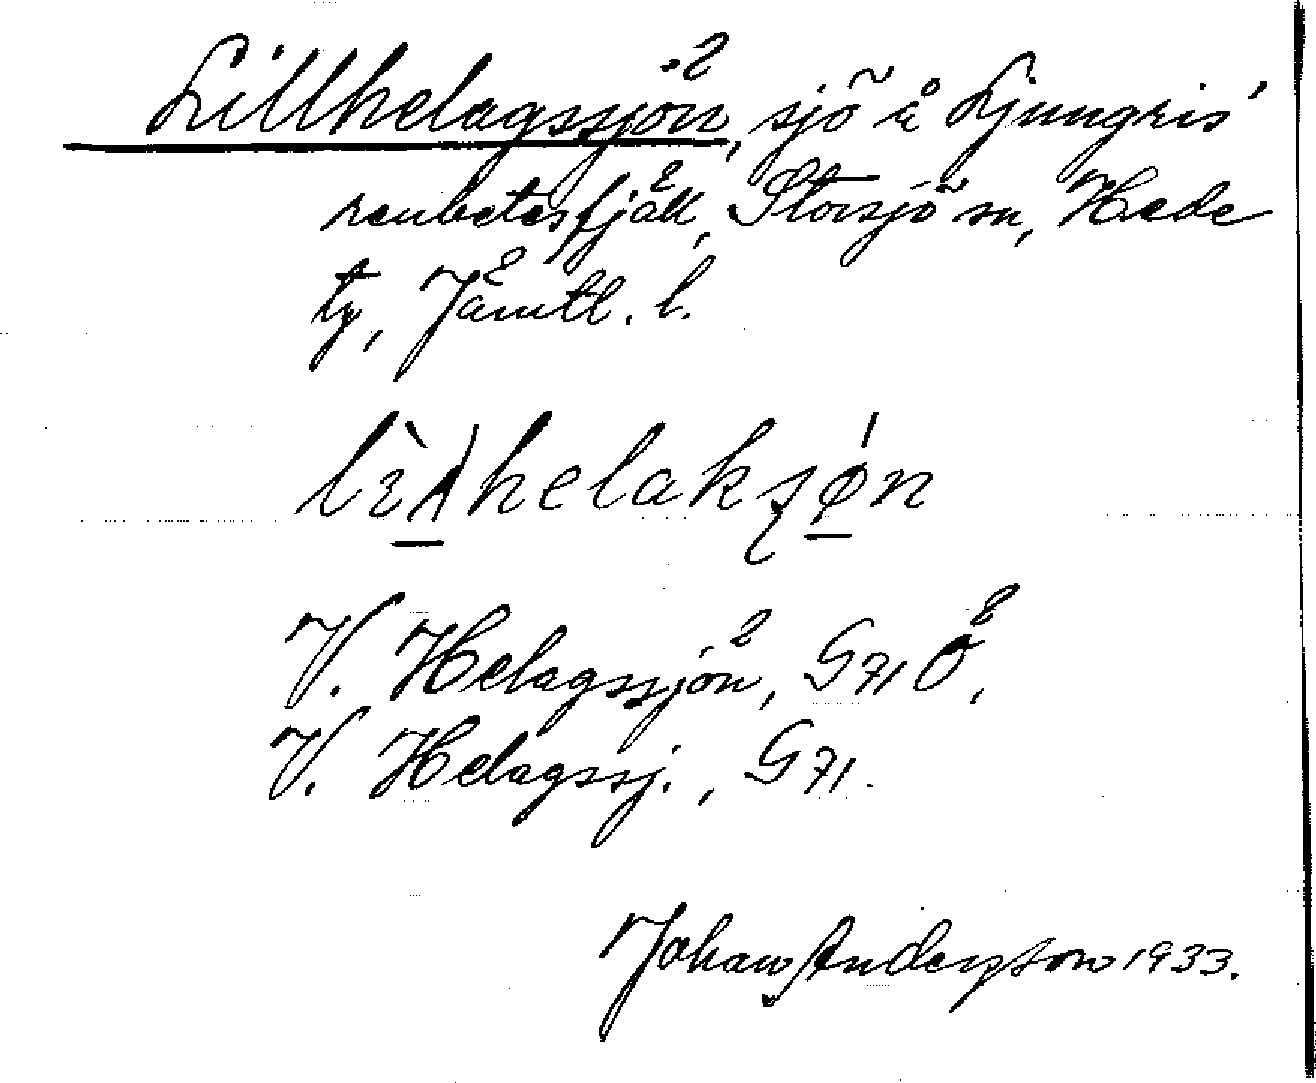 Lillhelagssjön, sjö å Ljungris'
renbetesfjäll, Storsjö sn, Hede
tg, Jämtl. l.
helaksøn
V. Helagssjön, G71Ö,
V. Helagssj., G71.
Johan Anderson 1933.